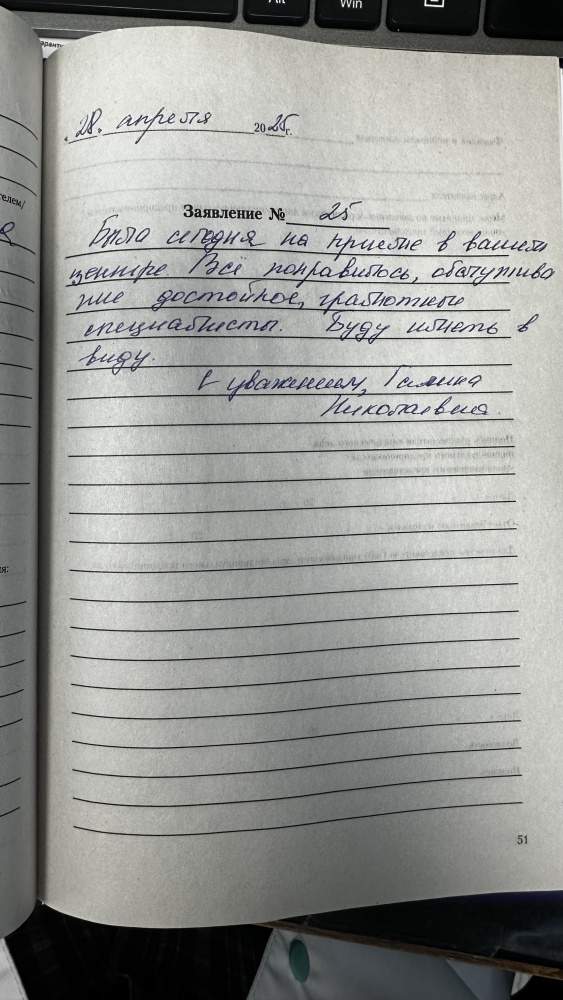 Win
«28» апреля 2025г.
Заявление № 25
Была сегодня на приеме в вашем
центре. Всё понравилось, обслужива
ние достойное, грамотные
специалисты. Буду иметь в
виду.
С уважением, Галина
Николаевна.
51